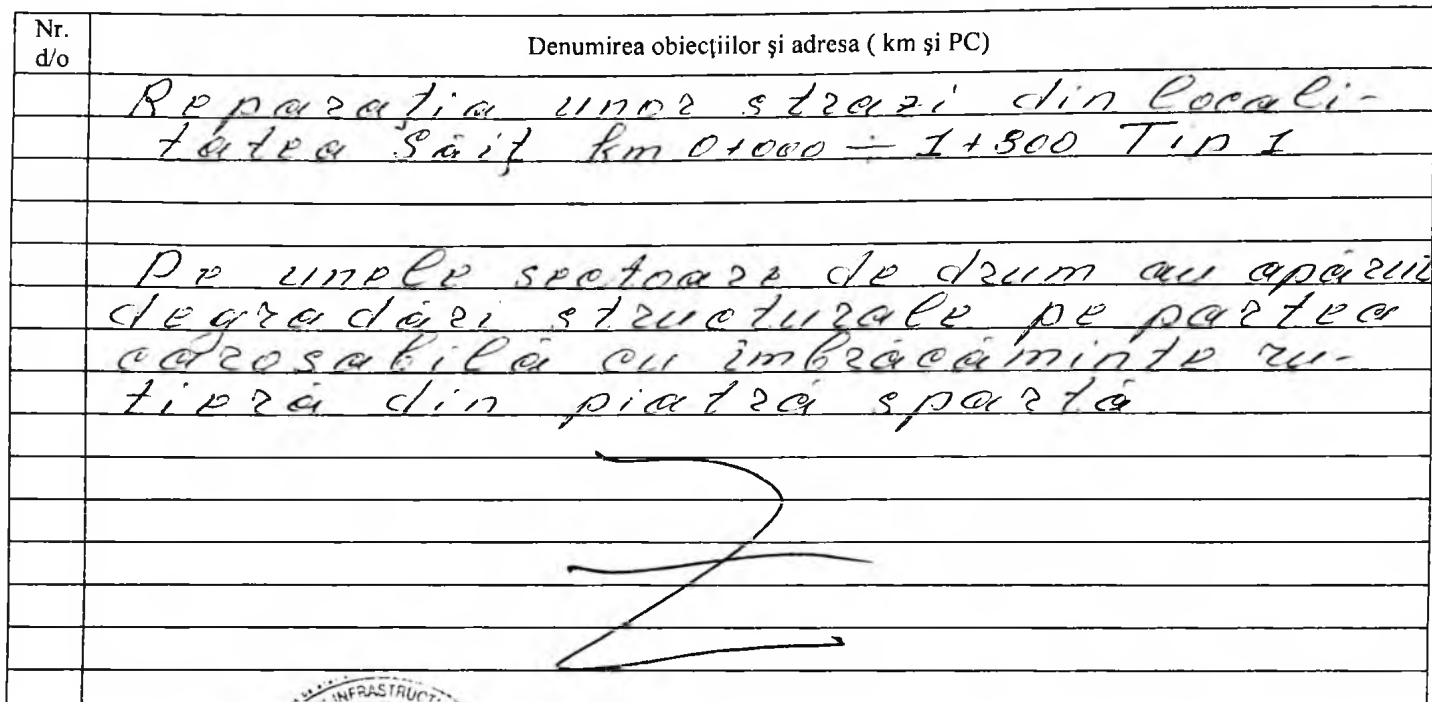 Nr.
d/o
Denumirea obiecțiilor și adresa ( km și PC)
Reparația unor strazi din locali-
tatea Săiț km 0+000 ÷ 1+300 Tip 1
Pe unele sectoare de drum au apărut
degradări structurale pe partea
carosabilă cu îmbrăcăminte ru-
tieră din piatră spartă
INFRASTRUCT